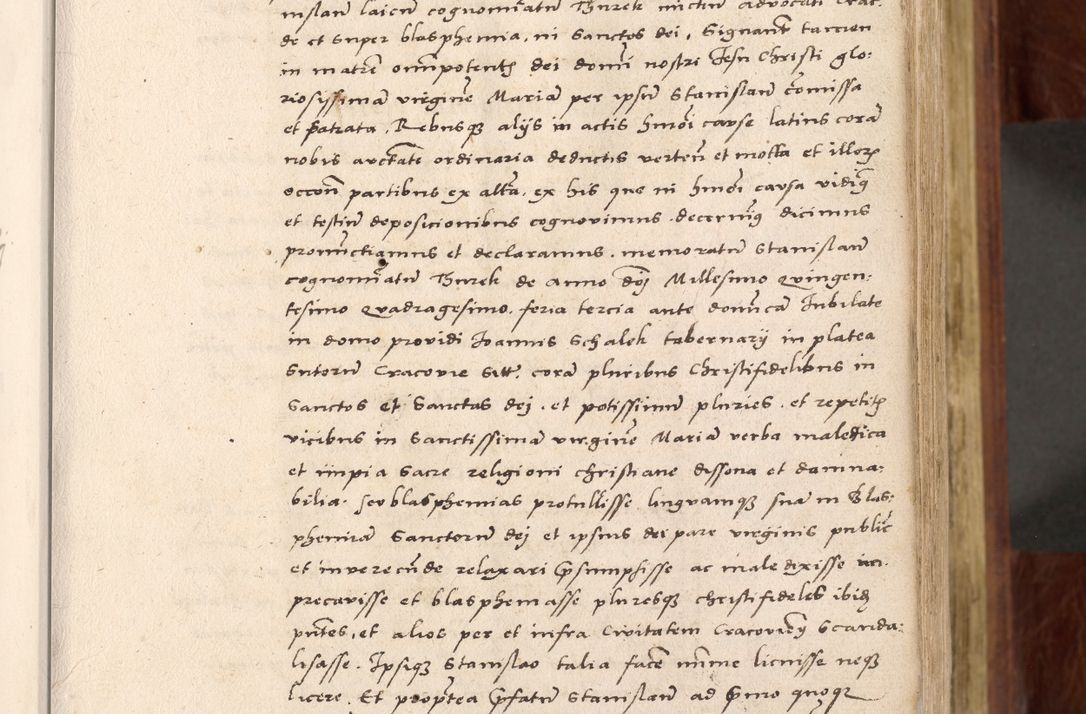 nislaum laicum cognominatum Thurek iuxtim advocati Crac:
de et super blasphemia, in Sanctos dei, Signantr tamen
in matre omnipotentis dei domi nostri Jesu Christi glo:
riosissimam virgine Maria per ipsum Stanislaum comissa
et patrata. Rebusq alijs in actis hmoi cause latius cora
nobis auctate ordinaria deductis verten et motta et illorz
occon partibus ex alta, ex his que in hmoi causa vidiq
et testium deposicionibus cognovimus. decernimq dicimus
pronunctiamus et declaramus. memoratum Stanislaum
cognominatum Thurek de anno doj Millesimo quingen:
tesimo quadragesimo. feria tercia ante domica Jubilate
in domo providi Joannis Schalek tabernarij in platea
Sutorum Cracovie Sitt. cora pluribus Christifidelibus in
Sanctos et Sanctas dej. et potissimum pluries. et repetitis
vicibus in Sanctissima virgine Maria verba maledica
et impia Sacre religioni christiane dissona et damna:
bilia. seu blasphemias protullisse linguamq sua in Blas:
phemiam Sanctorum dej et ipsius dei pare virginis public
et inverecunde relaxari psumpsisse ac maledixisse im
precavisse et blasphemasse pluresq christifideles ibidz
pntes, et alios per et infra Civitatem Cracovien Scanda:
lisasse. Ipsiq Stanislao talia face mime licuisse neq
licere. Et proptea pfatum Stanislaum ad pmo quoqz